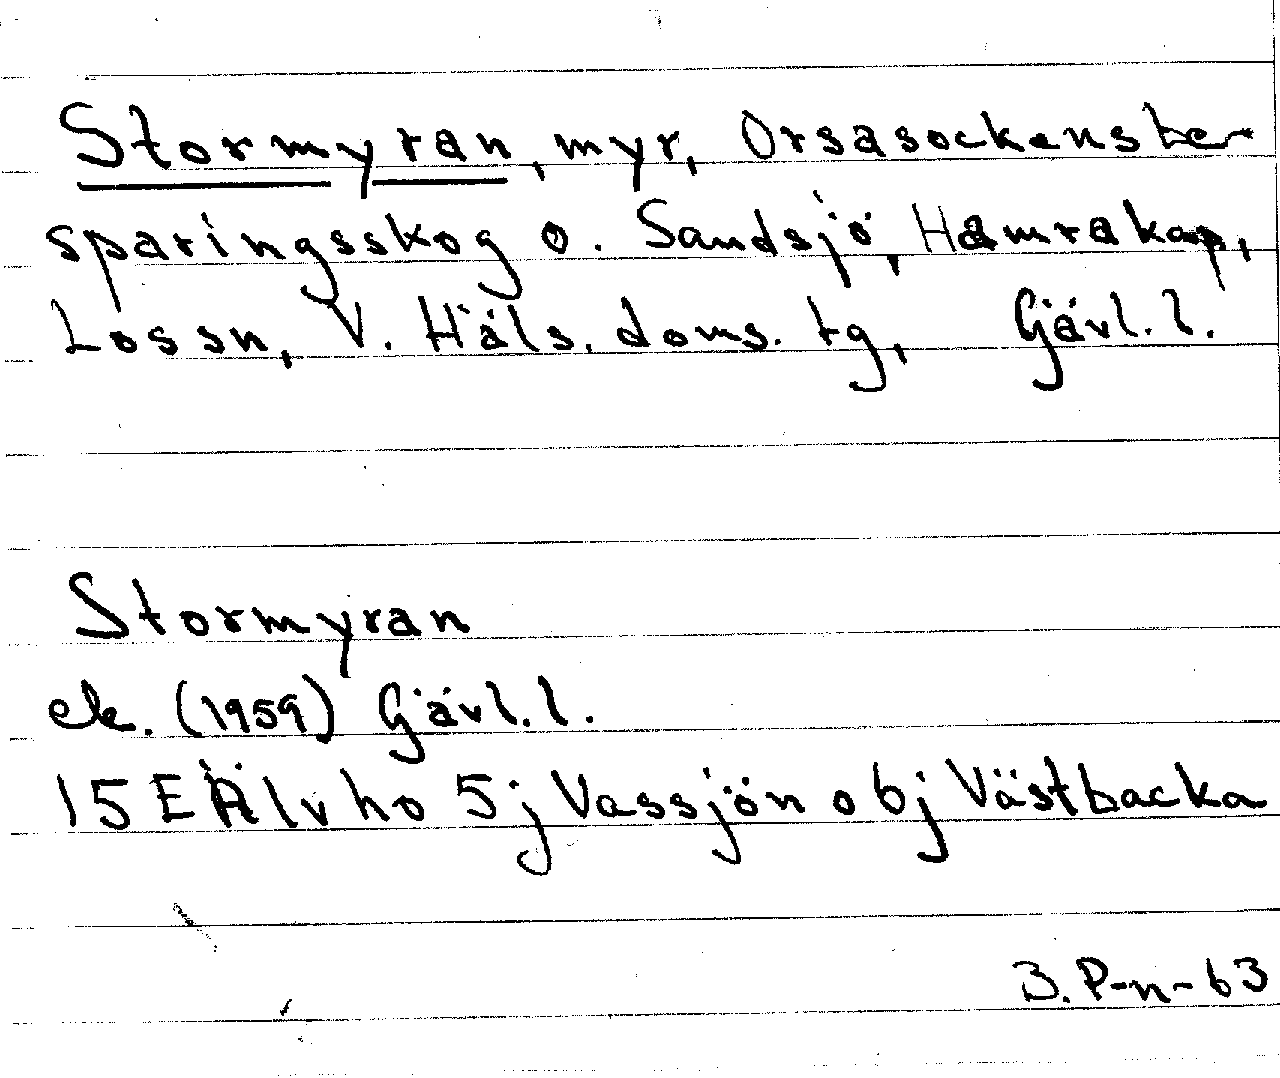 Stormyran, myr, Orsasockensbe-
sparingsskog o. Sandsjö, Hamrakap,
Lossn, V. Häls. doms. tg, Gävl. l.
Stormyran
ek. (1959) Gävl. l.
15 E Älvho 5j Vassjön o 6j Västbacka
B. P-n-63